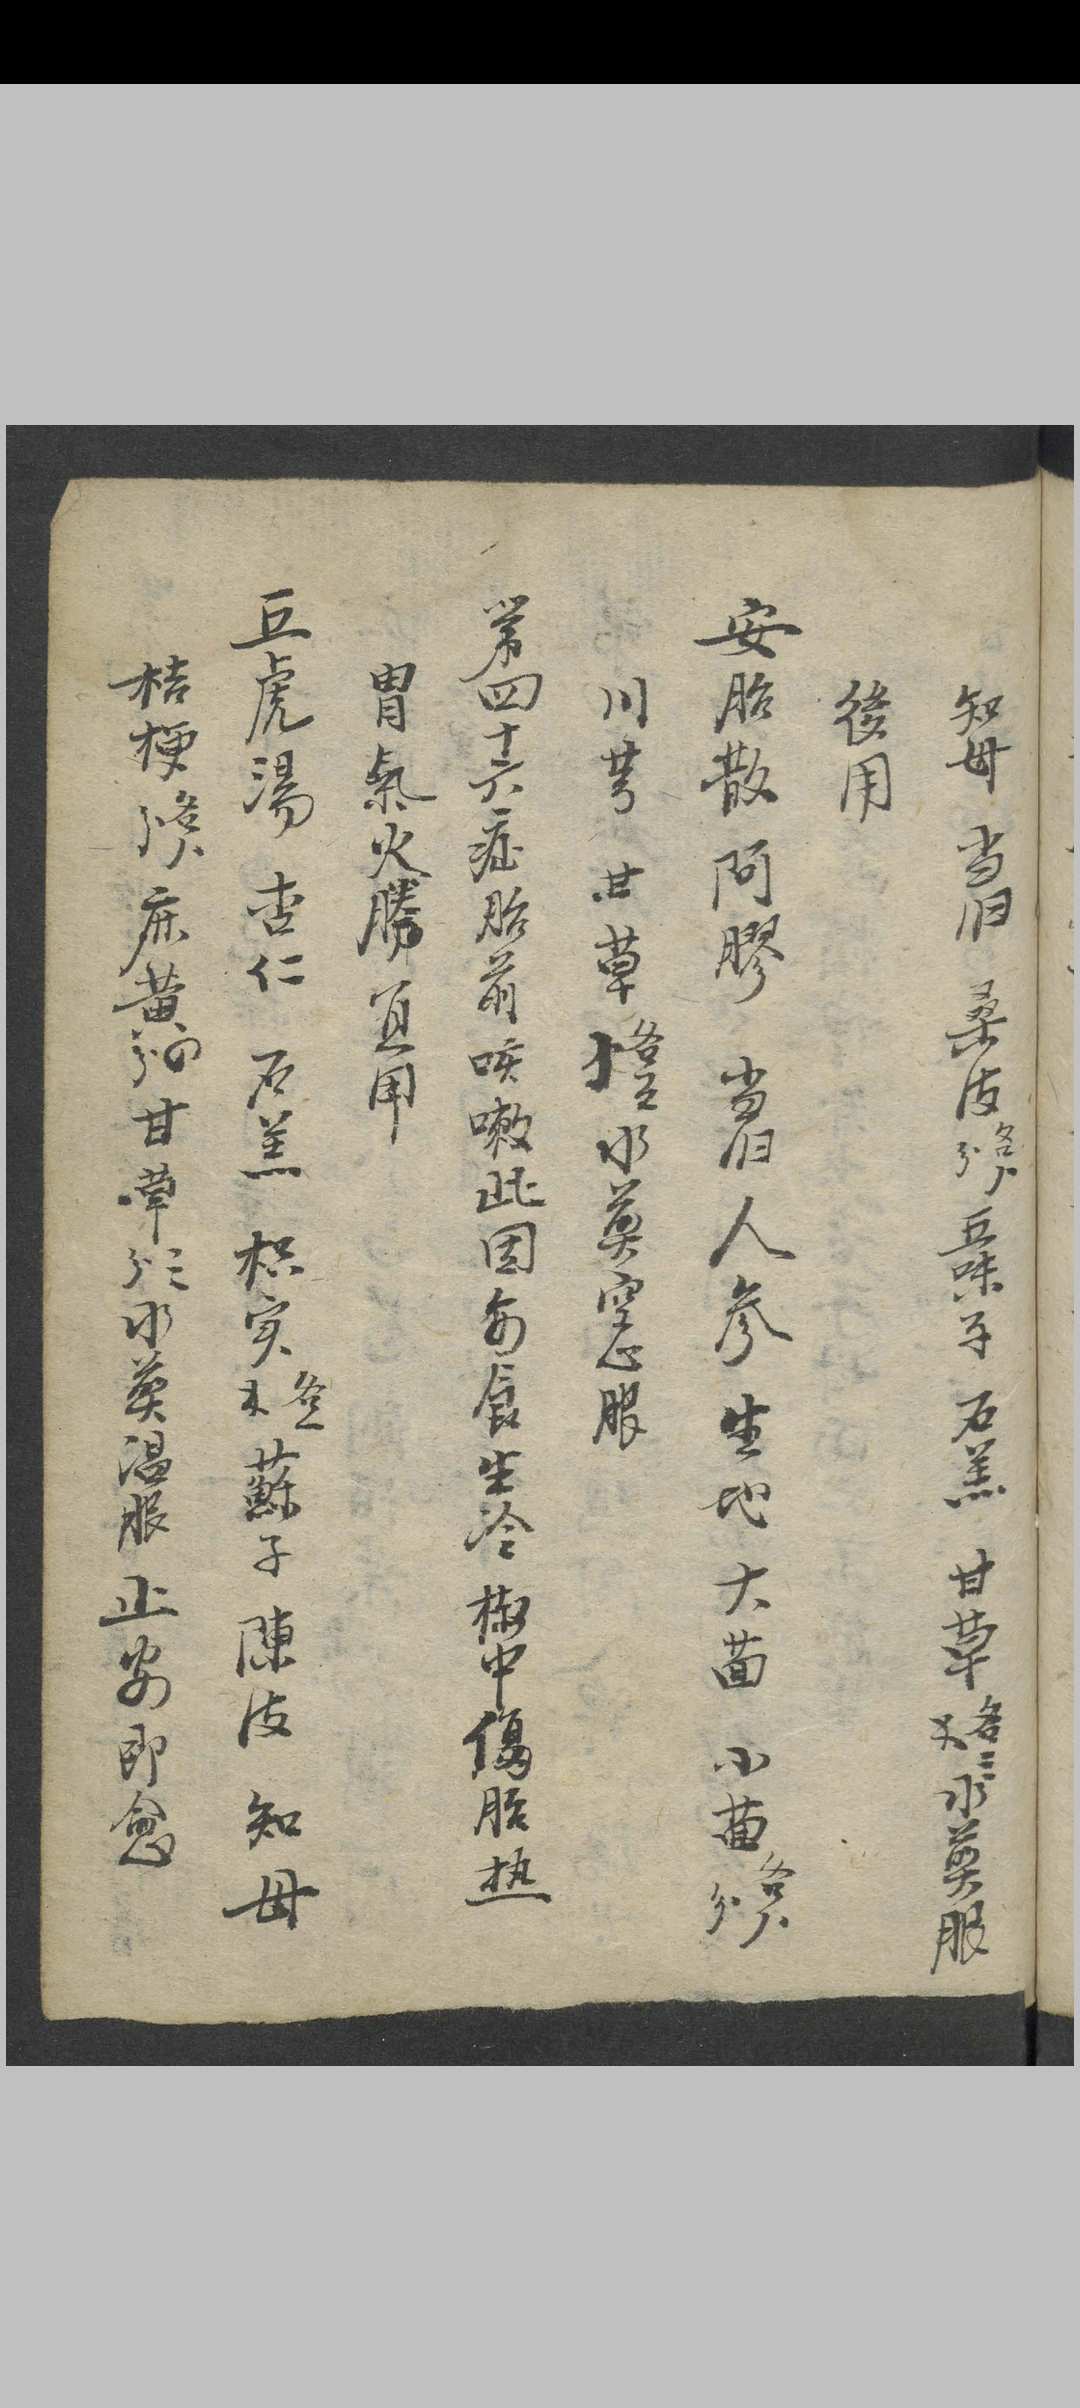 知母 当归 桑皮各八分 五味子 石羔 甘草各三分 水煎服
後用
安胎散 阿膠 当归 人參 生地 大茴 小茴各八分
川芎 甘草各五 水煎空心服
第四十六症胎前咳嗽此因多食生冷椒中傷胎热
胃氣火勝宜用
五虎湯 杏仁 石羔 枳实各 蘇子 陳皮 知母
桔梗各八分 麻黄 甘草 水煎温服 止安即愈